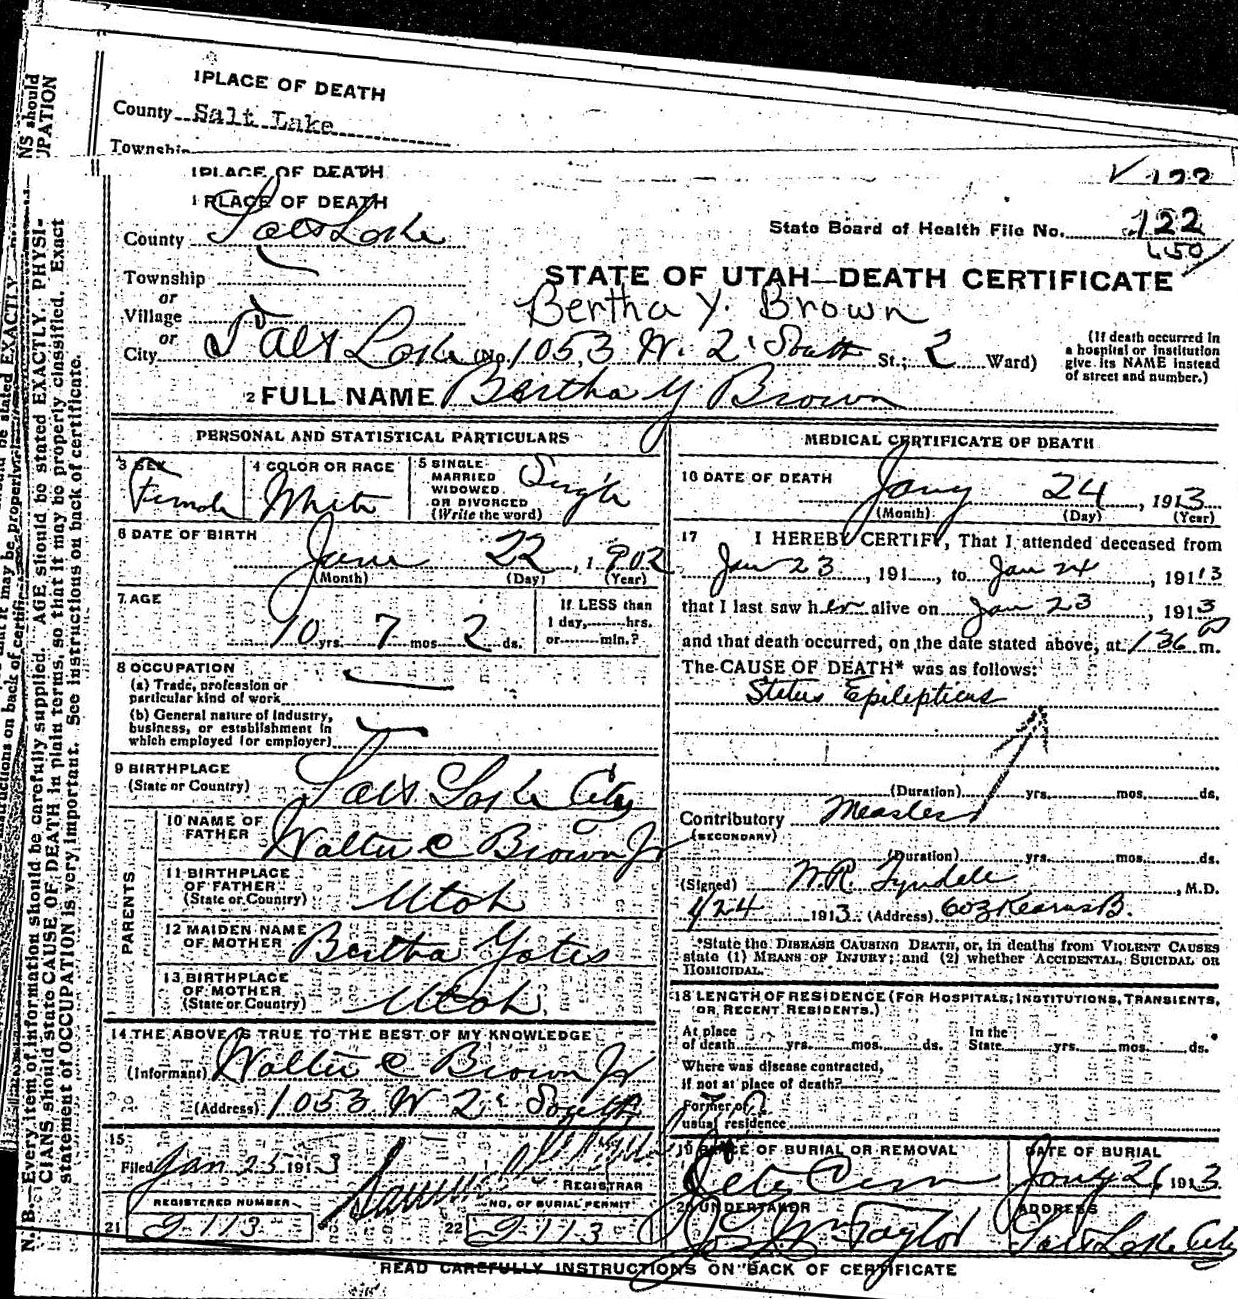 1 PLACE OF DEATH
County Salt Lake
Township
1 PLACE OF DEATH
1 PLACE OF DEATH
County Salt Lake
State Board of Health File No. 122
450
Township
or
Village
or
STATE OF UTAH—DEATH CERTIFICATE
Bertha Y. Brown
City Salt Lake (No. 1053 W. 2d South St.; 2 Ward)
(If death occurred in
a hospital or institution
give its NAME instead
of street and number.)
2 FULL NAME Bertha Y Brown
PERSONAL AND STATISTICAL PARTICULARS
3 SEX
Female
4 COLOR OR RACE
White
5 SINGLE
MARRIED
WIDOWED
OR DIVORCED
(Write the word)
Single
6 DATE OF BIRTH
June 22, 1902
(Month) (Day) (Year)
7 AGE
10 yrs. 7 mos. 2 ds.
If LESS than
1 day, hrs.
or min.?
8 OCCUPATION
(a) Trade, profession or
particular kind of work
(b) General nature of industry,
business, or establishment in
which employed (or employer)
9 BIRTHPLACE
(State or Country) Salt Lake City
PARENTS
10 NAME OF
FATHER Walter C Brown Jr
11 BIRTHPLACE
OF FATHER
(State or Country) Utah
12 MAIDEN NAME
OF MOTHER Bertha Yates
13 BIRTHPLACE
OF MOTHER
(State or Country) Utah
14 THE ABOVE IS TRUE TO THE BEST OF MY KNOWLEDGE
(Informant) Walter C Brown Jr
(Address) 1053 W 2d South
15
Filed Jan 25 1913
REGISTRAR
REGISTERED NUMBER
21 G 113
NO. OF BURIAL PERMIT
22 G 113
MEDICAL CERTIFICATE OF DEATH
16 DATE OF DEATH
Jany 24, 1913
(Month) (Day) (Year)
17 I HEREBY CERTIFY, That I attended deceased from
Jan 23, 191, to Jan 24, 1913
that I last saw her alive on Jan 23, 1913
and that death occurred, on the date stated above, at 1 36 P m.
The CAUSE OF DEATH* was as follows:
Status Epilepticus
(Duration) yrs. mos. ds.
Contributory Measles
(SECONDARY)
(Duration) yrs. mos. ds.
(Signed) W.R. Tyndale, M.D.
1/24 1913 (Address) 603 Kearns B.
*State the DISEASE CAUSING DEATH, or, in deaths from VIOLENT CAUSES
state (1) MEANS OF INJURY; and (2) whether ACCIDENTAL, SUICIDAL OR
HOMICIDAL.
18 LENGTH OF RESIDENCE (FOR HOSPITALS, INSTITUTIONS, TRANSIENTS,
OR RECENT RESIDENTS.)
At place
of death yrs. mos. ds.
In the
State yrs. mos. ds.
Where was disease contracted,
if not at place of death?
Former or
usual residence
19 PLACE OF BURIAL OR REMOVAL
City Cem
DATE OF BURIAL
Jany 26 1913
20 UNDERTAKER
Jos Wm Taylor
ADDRESS
Salt Lake City
READ CAREFULLY INSTRUCTIONS ON BACK OF CERTIFICATE
N. B.—Every item of information should be carefully supplied. AGE should be stated EXACTLY. PHYSI-
CIANS should state CAUSE OF DEATH in plain terms, so that it may be properly classified. Exact
statement of OCCUPATION is very important. See instructions on back of certificate.